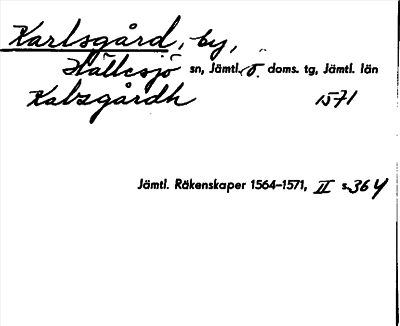 Karlsgård, by,
Hällesjö sn, Jämtl. ö. doms. tg, Jämtl. län
Kalzgårdh 1571
Jämtl. Räkenskaper 1564–1571, II s. 364